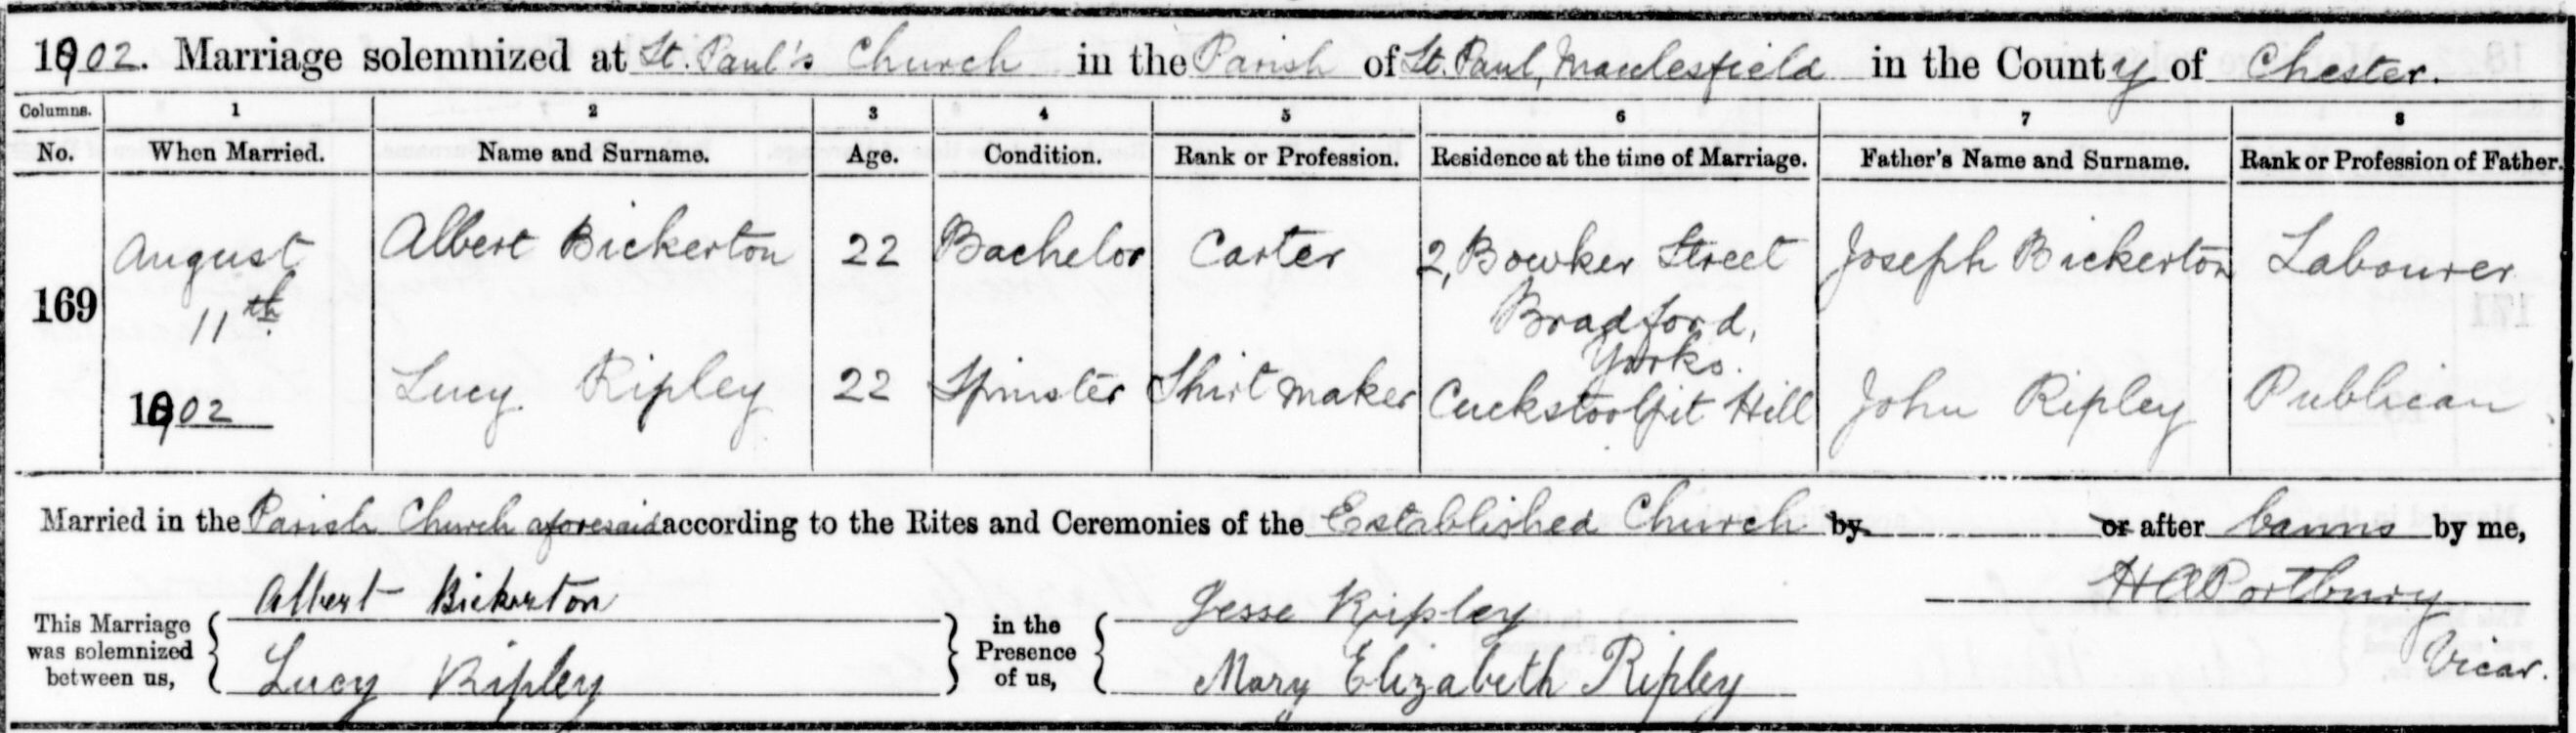 1902. Marriage solemnized at St. Paul's Church in the Parish of St. Paul, Macclesfield in the County of Chester.
Columns. 1 2 3 4 5 6 7 8
No. When Married. Name and Surname. Age. Condition. Rank or Profession. Residence at the time of Marriage. Father's Name and Surname. Rank or Profession of Father.
169 August 11th 1902 Albert Bickerton 22 Bachelor Carter 2, Bowker Street Bradford, Yorks. Joseph Bickerton Labourer
Lucy Ripley 22 Spinster Shirt maker Cuckstoolpit Hill John Ripley Publican
Married in the Parish Church aforesaid according to the Rites and Ceremonies of the Established Church by or after banns by me,
This Marriage was solemnized between us, Albert Bickerton Lucy Ripley in the Presence of us, Jesse Ripley Mary Elizabeth Ripley H A Portbury Vicar.